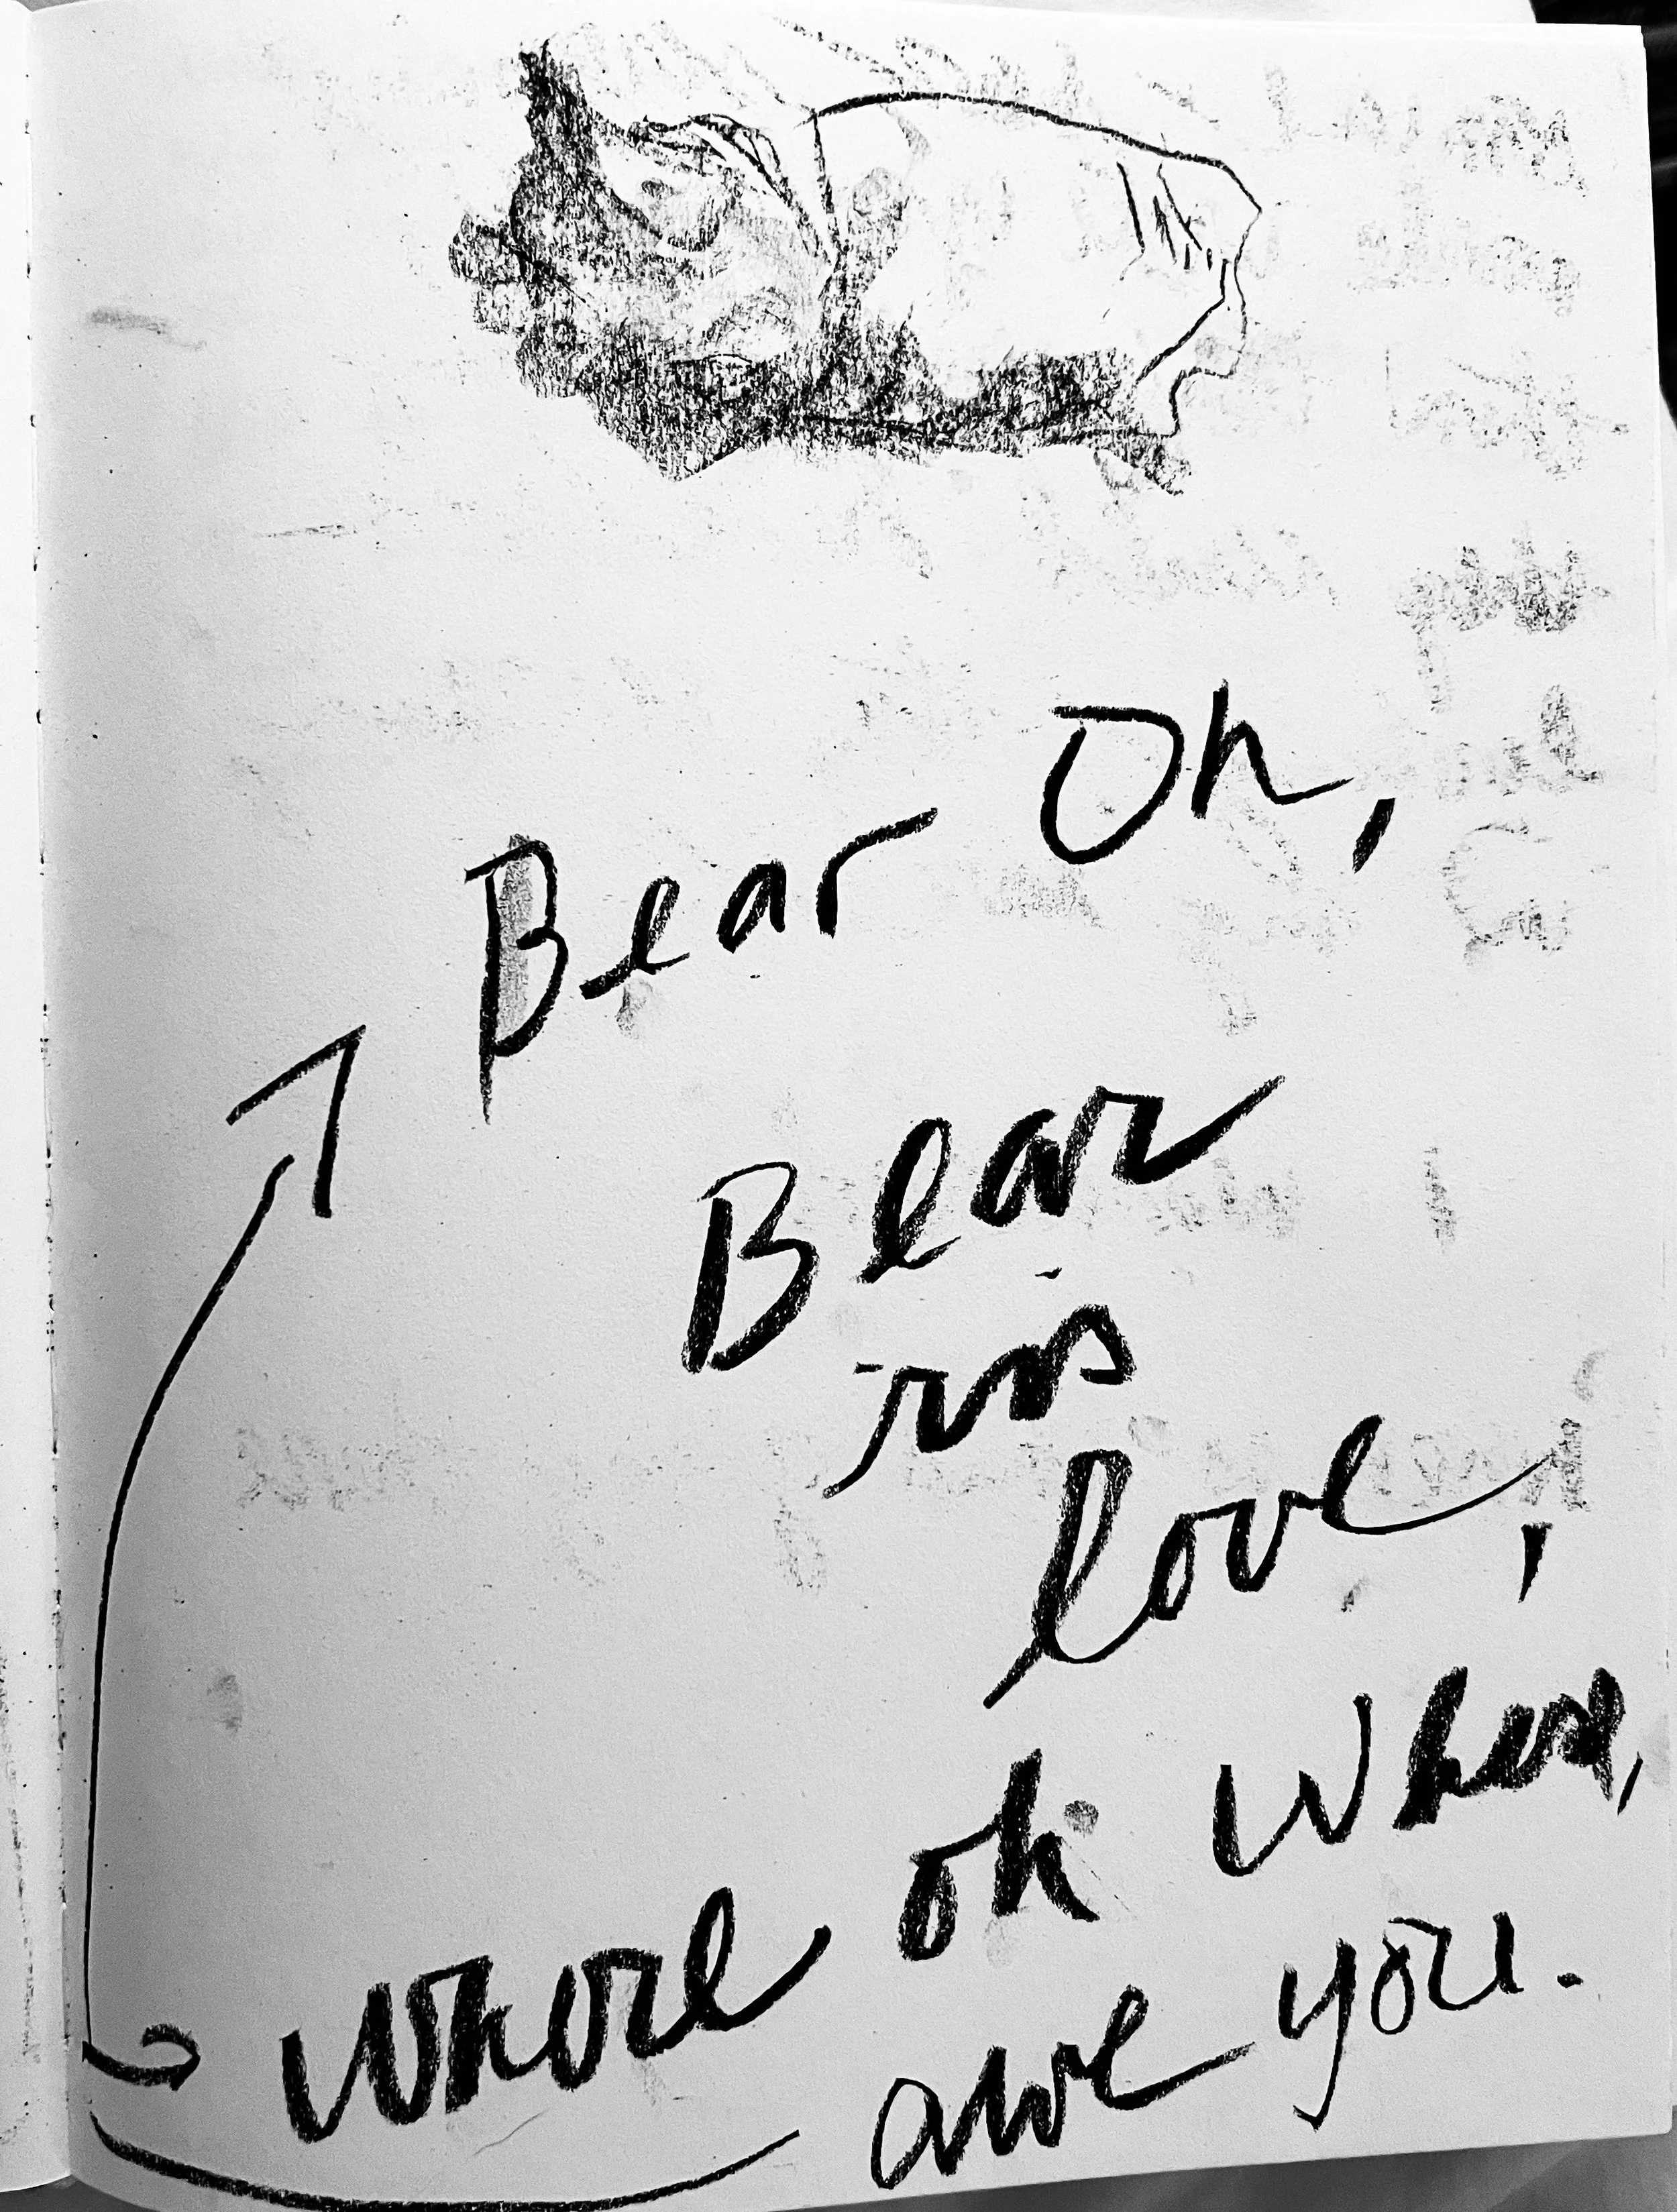 Bear Oh,
Bear
is
love,
where oh where,
are you.